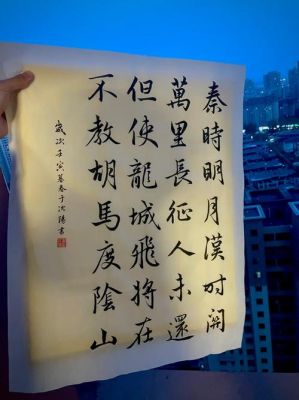 秦時明月漢时關
萬里長征人未還
但使龍城飛將在
不教胡馬度陰山
歲次壬寅暮春于沈陽書